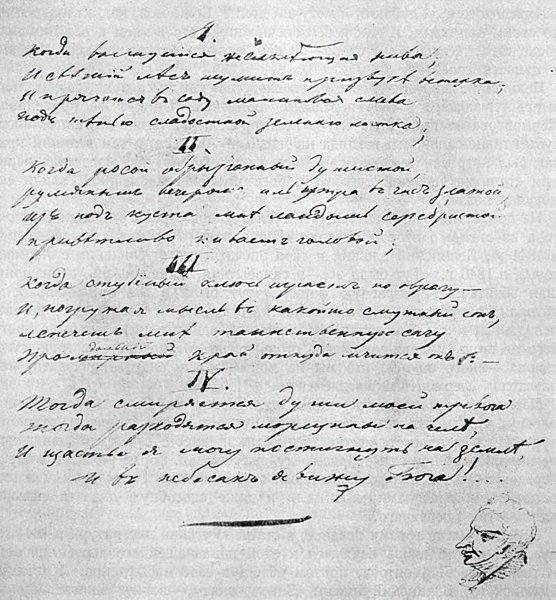 I.
Когда волнуется желтѣющая нива,
И свѣжій лѣсъ шумитъ при звукѣ вѣтерка;
И прячется въ саду малиновая слива
Подъ тѣнью сладостной зеленаго листка;
II.
Когда росой обрызганный душистой,
румянымъ вечеромъ иль утра въ часъ златой,
Изъ подъ куста мнѣ ландышъ серебристой
привѣтливо киваетъ головой;
III
Когда студеный ключъ играетъ по оврагу—
И, погружая мысль въ какой то смутный сонъ,
лепечетъ мнѣ таинственную сагу
Про мирный край откуда мчится онъ:—
дальный
IV.
Тогда смиряется души моей тревога
тогда расходятся морщины на челѣ,
И щастье я могу постигнуть на землѣ,
И въ небесахъ я вижу Бога!....